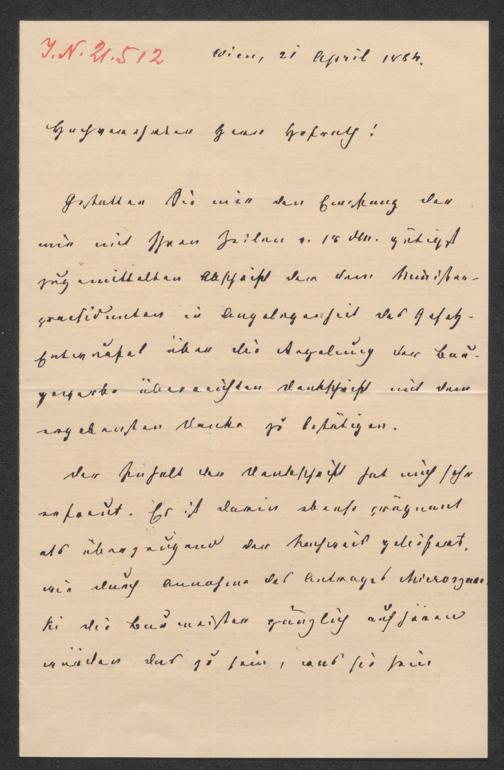 J.N. 21.512
Wien, 21 April 1884.
Hochverehrter Herr Hofrath!
Gestatten Sie mir den Empfang der
mir mit Ihren Zeilen v. 18 dM. gütigst
zugemittelten Abschrift der dem Minister-
praesidenten in Angelegenheit des Gesetz-
Entwurfes über die Regelung der Bau-
gewerbe überreichten Denkschrift mit dem
ergebensten Danke zu bestätigen.
Der Inhalt der Denkschrift hat mich sehr
erfreut. Es ist darin ebenso prägnant
als überzeugend der Nachweis geliefert,
wie durch Annahme des Antrages
die Baumeister gänzlich aufhören
würden das zu sein, was sie sein